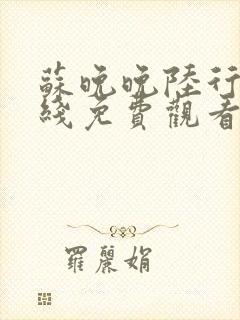 蘇晚晚陸行
綫免費觀看
羅麗娟